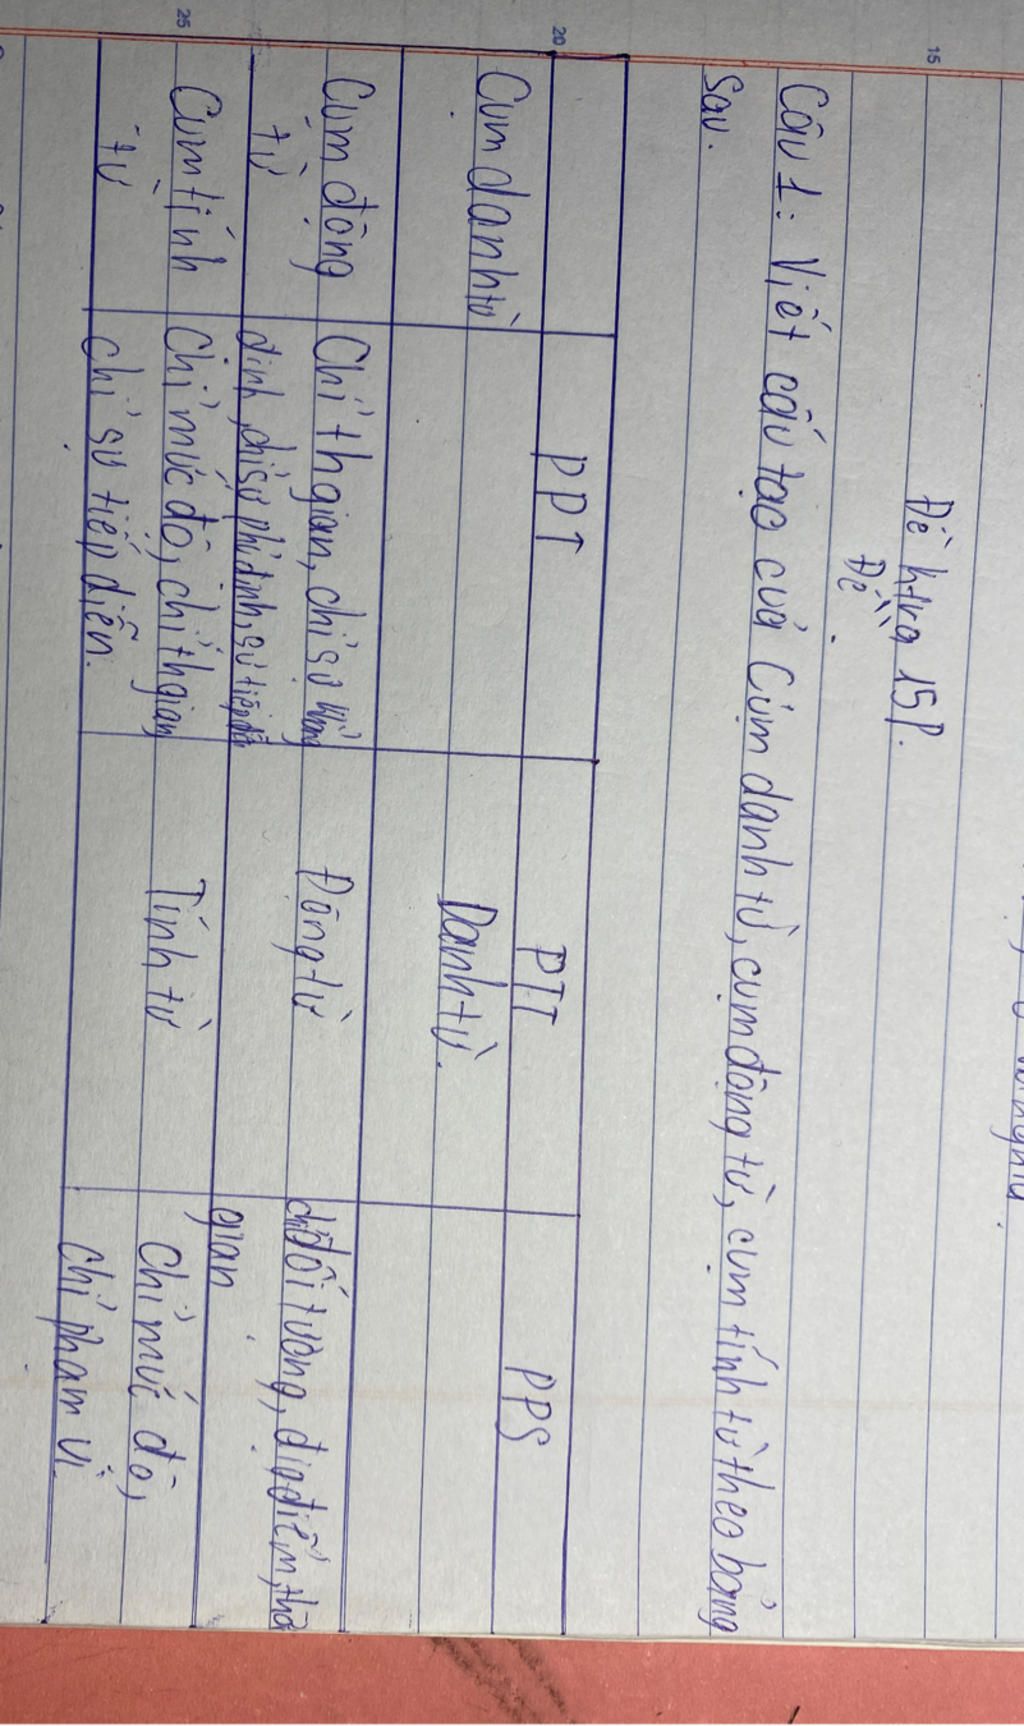 Đề ktra 15p.
Đề
Câu 1: Viết cấu tạo của Cụm danh từ, cụm động từ, cụm tính từ theo bảng
sau.
PPT PTT PPS
Cụm danh từ Danh từ.
Cụm động Chỉ thgian, chỉ sự khẳng Động từ chỉ đối tượng, địa điểm, thời
từ định, chỉ sự phủ định, sự tiếp diễn gian
Cụm tính Chỉ mức độ, chỉ thgian, Tính từ Chỉ mức độ,
từ chỉ sự tiếp diễn. chỉ phạm vi.
20
25
15